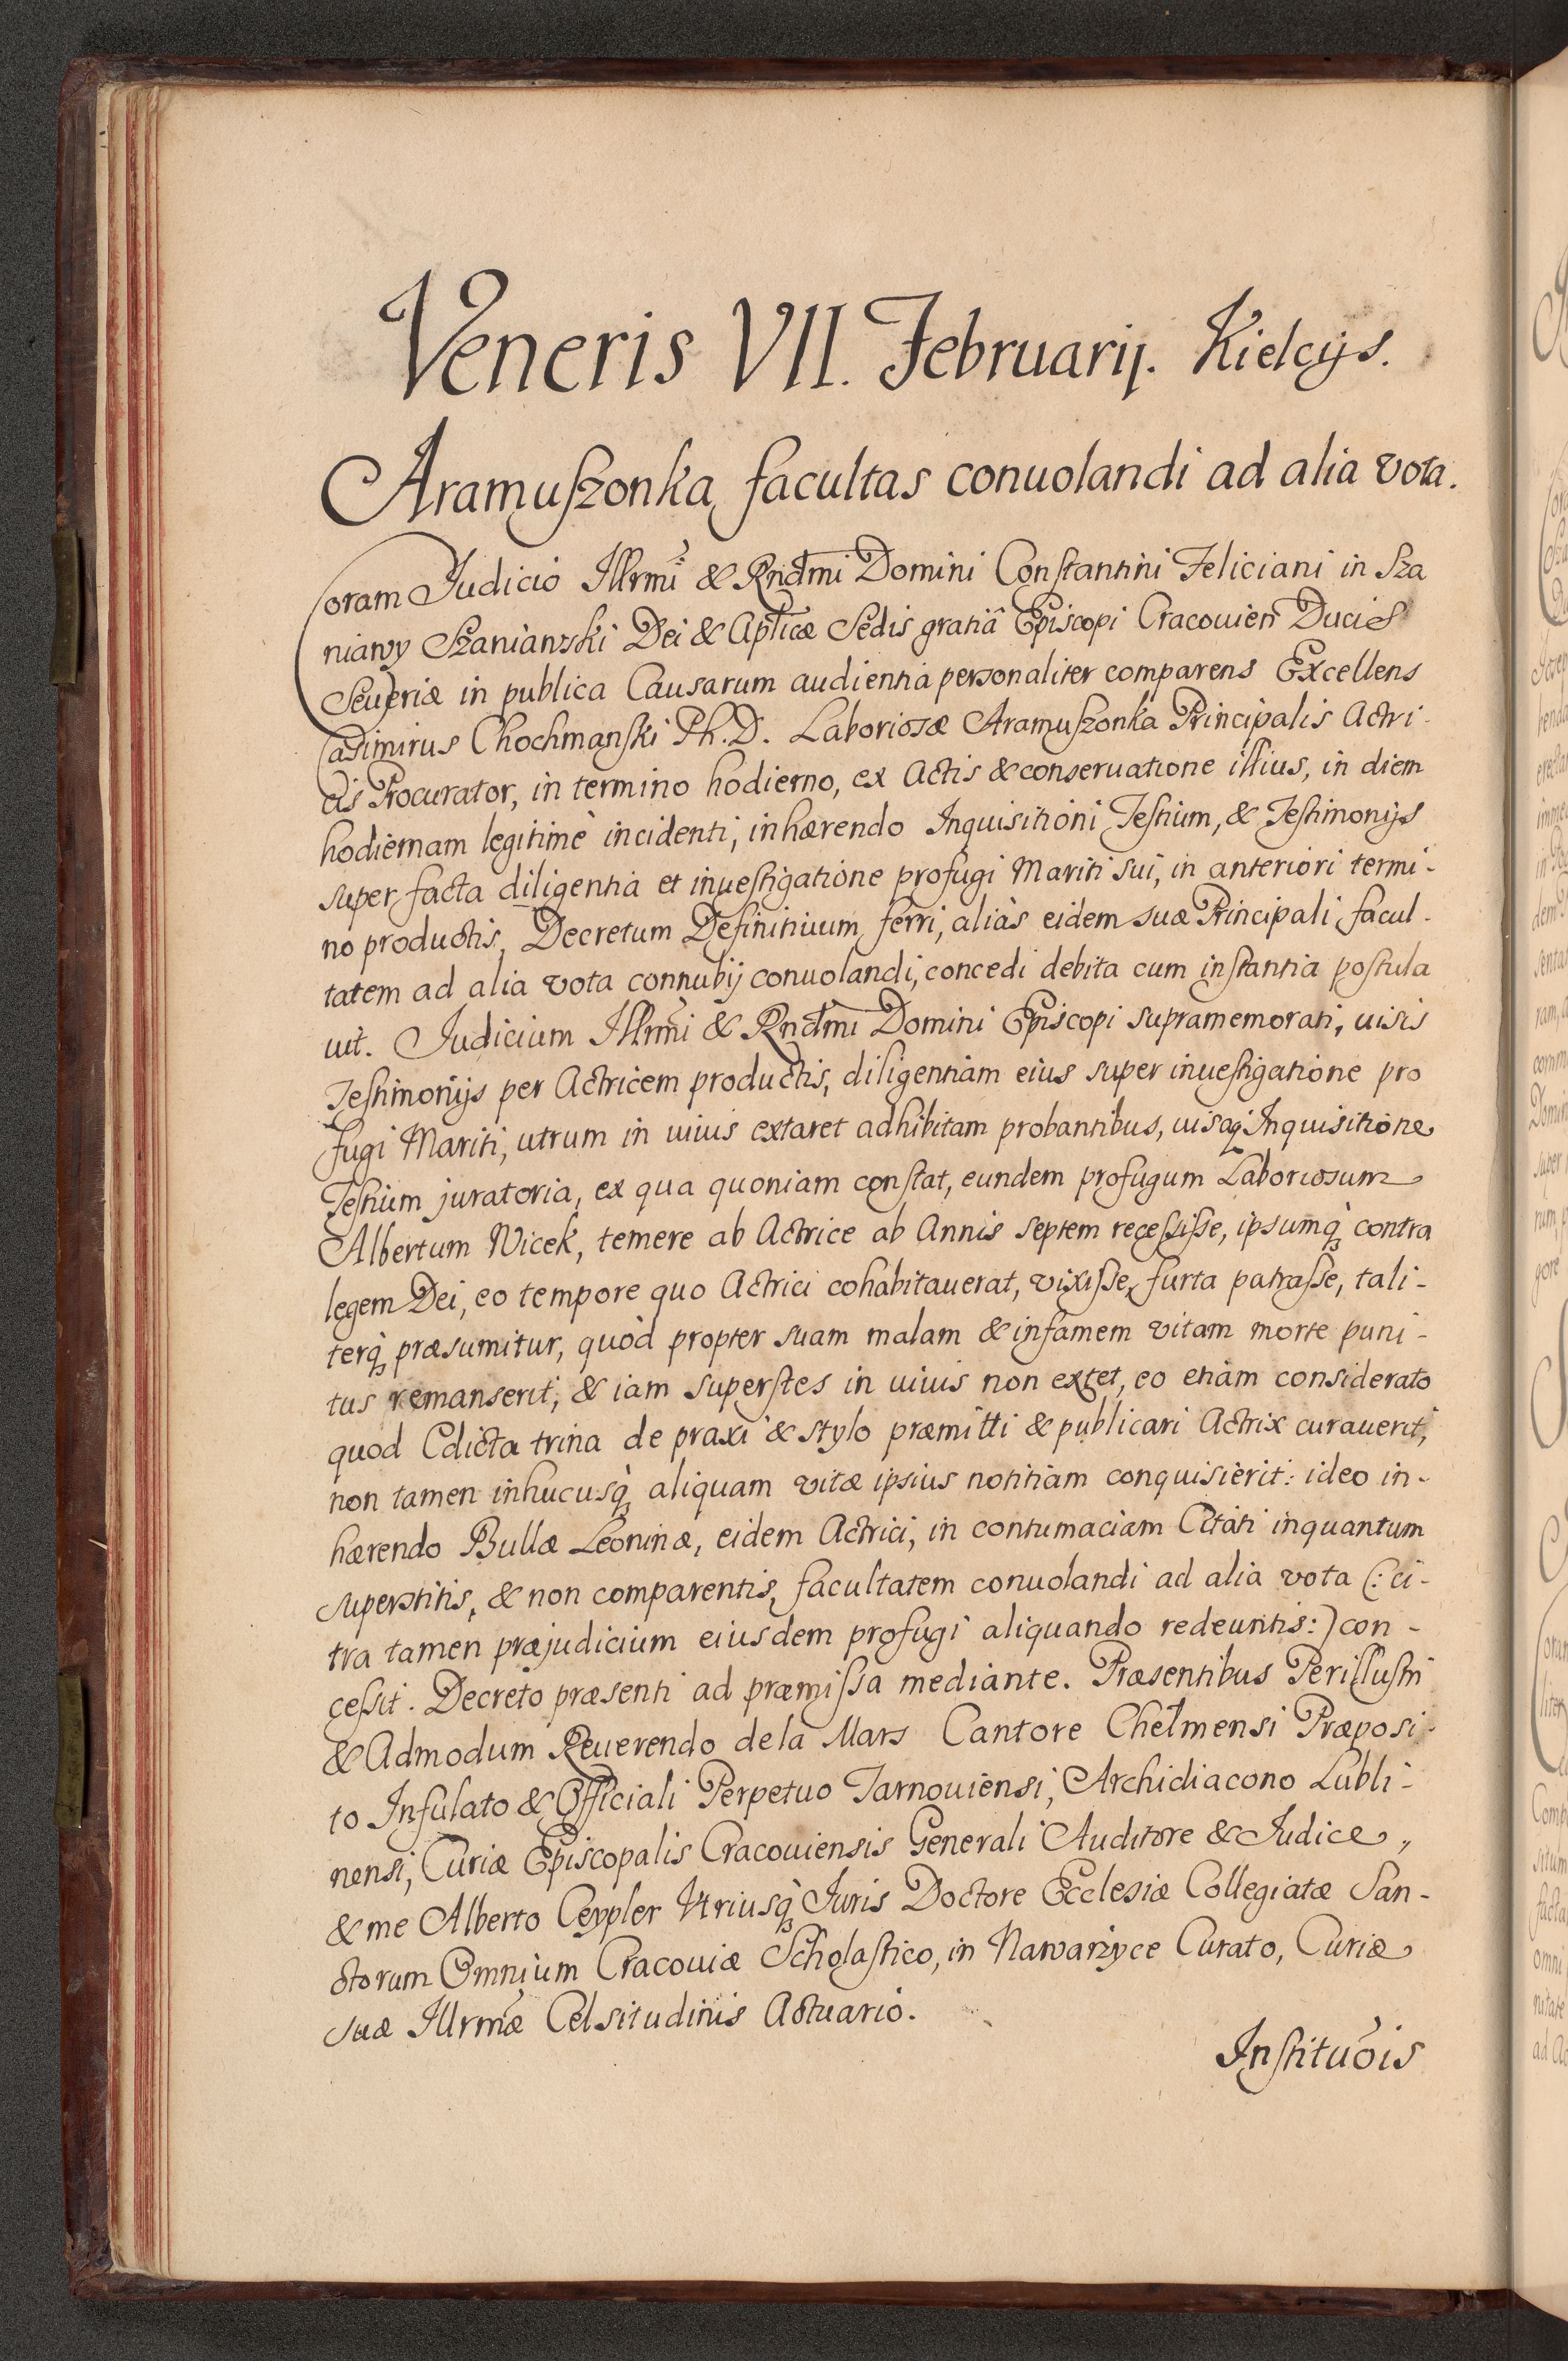 Veneris VII. Februarij. Kielcijs.
Aramuszonka facultas conuolandi ad alia vota.
Coram Judicio Illrmi & Rndmi Domini Constantini Feliciani in Sza
niawy Szaniawski Dei & Aplicæ Sedis gratiâ Episcopi Cracouien Ducis
Seueriæ in publica Causarum audientia personaliter comparens Excellens
Casimirus Chochmanski Ph. D. Laboriosæ Aramuszonka Principalis Actri-
cis Procurator, in termino hodierno, ex Actis & conseruatione illius, in diem
hodiernam legitimè incidenti, inhærendo Inquisitioni Testium, & Testimonijs
super facta diligentia et inuestigatione profugi Mariti sui, in anteriori termi-
no productis, Decretum Definitiuum ferri, aliàs eidem suæ Principali facul-
tatem ad alia vota connubij conuolandi, concedi debita cum instantia postula
uit. Judicium Illrmi & Rndmi Domini Episcopi supramemorati, uisis
Testimonijs per Actricem productis, diligentiam eius super inuestigatione pro
fugi Mariti, utrum in uiuis extaret adhibitam probantibus, uisaq; Inquisitione
Testium juratoria, ex qua quoniam constat, eundem profugum Laboriosum
Albertum Wicek, temere ab Actrice ab Annis septem recessisse, ipsumq; contra
legem Dei, eo tempore quo Actrici cohabitauerat, vixisse, furta patrasse, tali-
terq; præsumitur, quòd propter suam malam & infamem vitam morte puni-
tus remanserit, & iam superstes in uiuis non extet, eo etiam considerato
quod Edicta trina de praxi & stylo præmitti & publicari Actrix curauerit,
non tamen inhucusq; aliquam vitæ ipsius notitiam conquisierit: ideo in-
hærendo Bullæ Leoninæ, eidem Actrici, in contumaciam Citati inquantum
superstitis, & non comparentis, facultatem conuolandi ad alia vota (: ci-
tra tamen præjudicium eiusdem profugi aliquando redeuntis:) con-
cessit. Decreto præsenti ad præmissa mediante. Præsentibus Perillustri
& Admodum Reuerendo de la Mars Cantore Chelmensi Præposi-
to Infulato & Officiali Perpetuo Tarnouiensi, Archidiacono Lubli-
nensi, Curiæ Episcopalis Cracouiensis Generali Auditore & Judice,
& me Alberto Ceypler Utriusq; Juris Doctore Ecclesiæ Collegiatæ San-
ctorum Omnium Cracouiæ Scholastico, in Nawarzyce Curato, Curiæ
suæ Illrmæ Celsitudinis Actuario.
Instituois